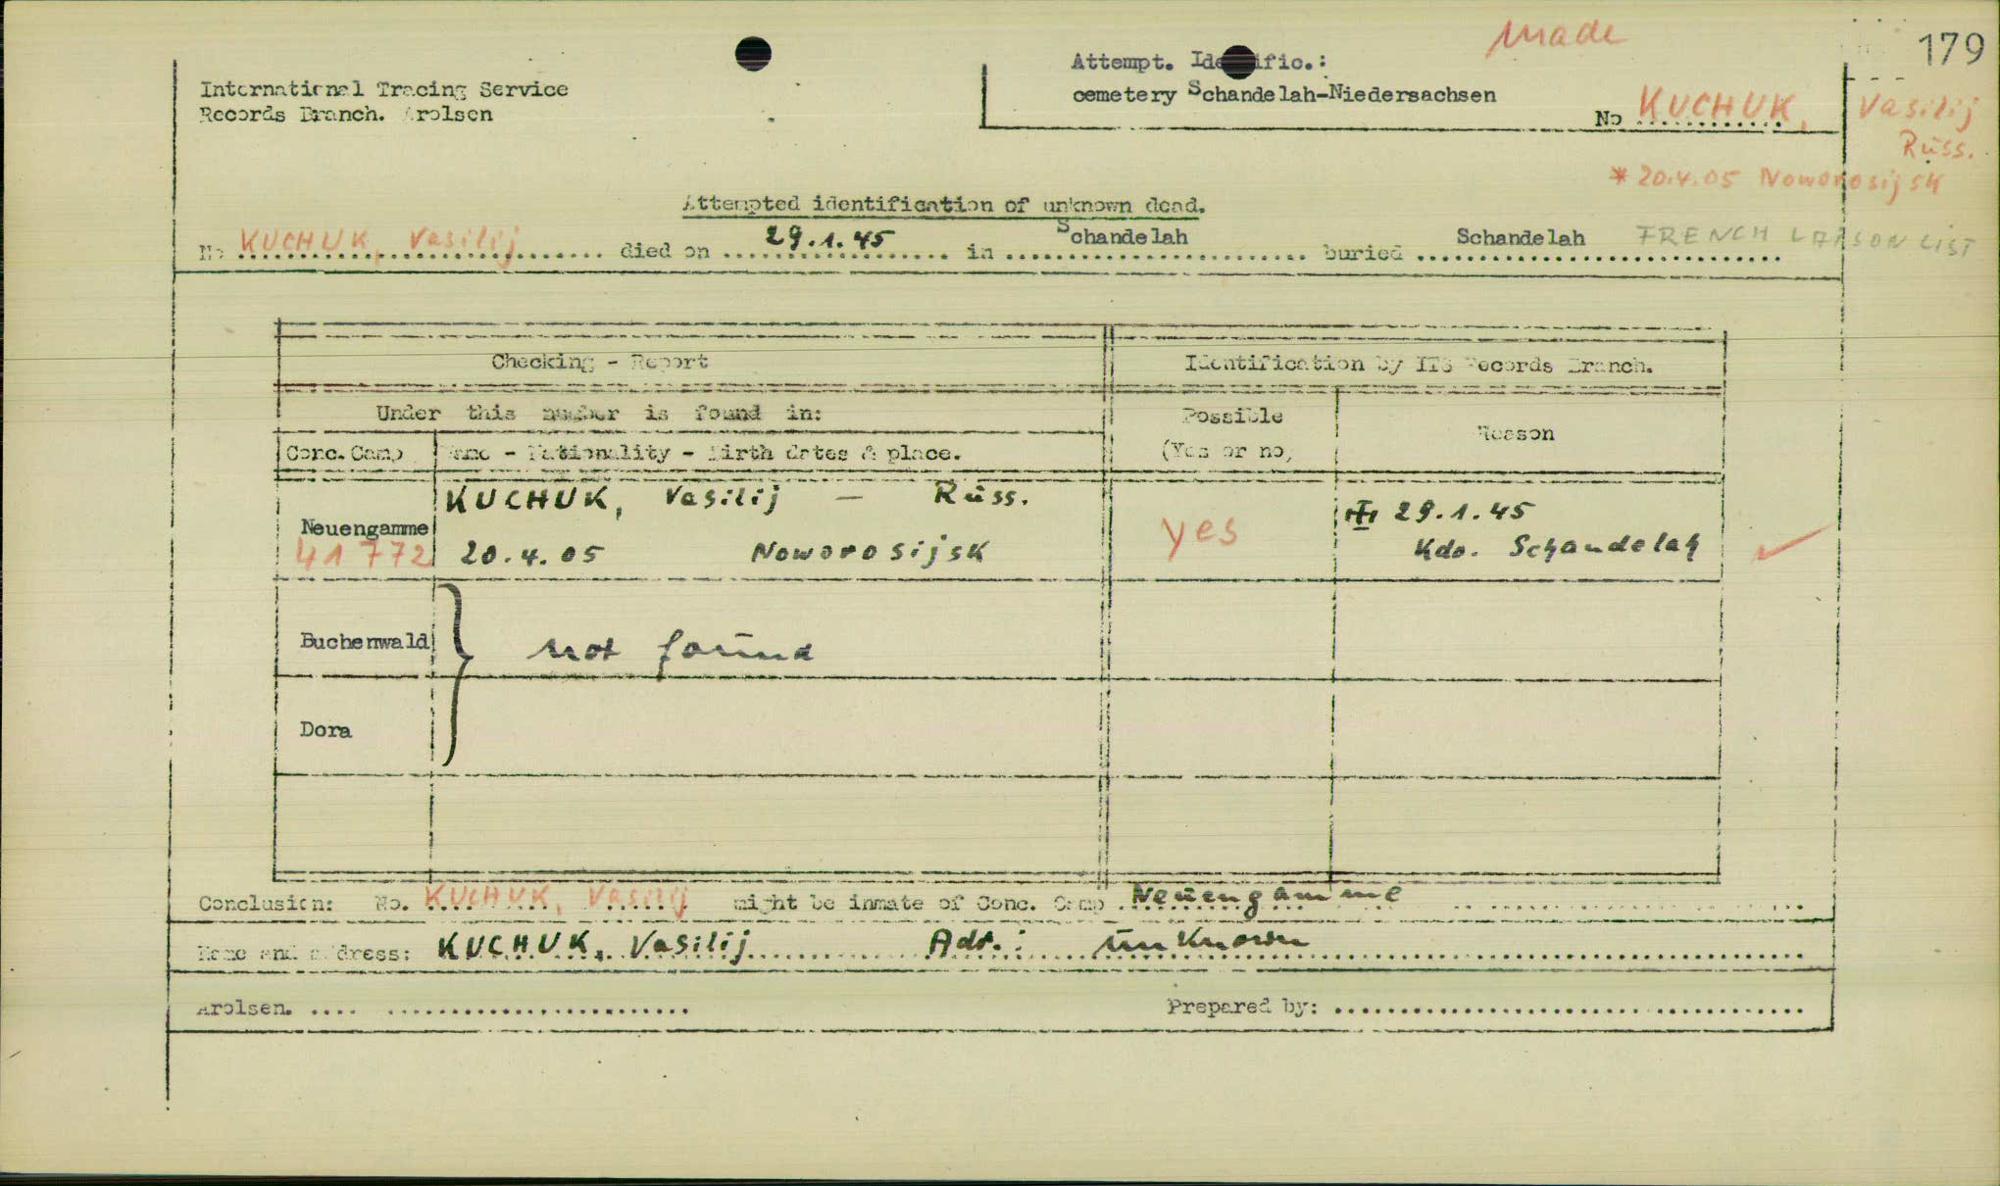 made
179
Attempt. Identific.:
International Tracing Service
cemetery Schandelah-Niedersachsen
Records Branch. Arolsen
No KUCHUK, Vasilij
Russ.
* 20.4.05 Noworosijsk
Attempted identification of unknown dead.
No KUCHUK, Vasilij died on 29.1.45 in Schandelah buried Schandelah FRENCH LIST
Checking - Report
Identification by ITS Records Branch.
Under this number is found in:
Possible
(Yes or no)
Reason
Conc. Camp
Name - Nationality - Birth dates & place.
KUCHUK, Vasilij — Russ.
Neuengamme
41772
20.4.05 Noworosijsk
yes
29.1.45
Kdo. Schandelah
Buchenwald
not found
Dora
Conclusion: No. KUCHUK, Vasilij might be inmate of Conc. Camp Neuengamme
Name and address: KUCHUK, Vasilij Adr.: unknown
Arolsen.
Prepared by: